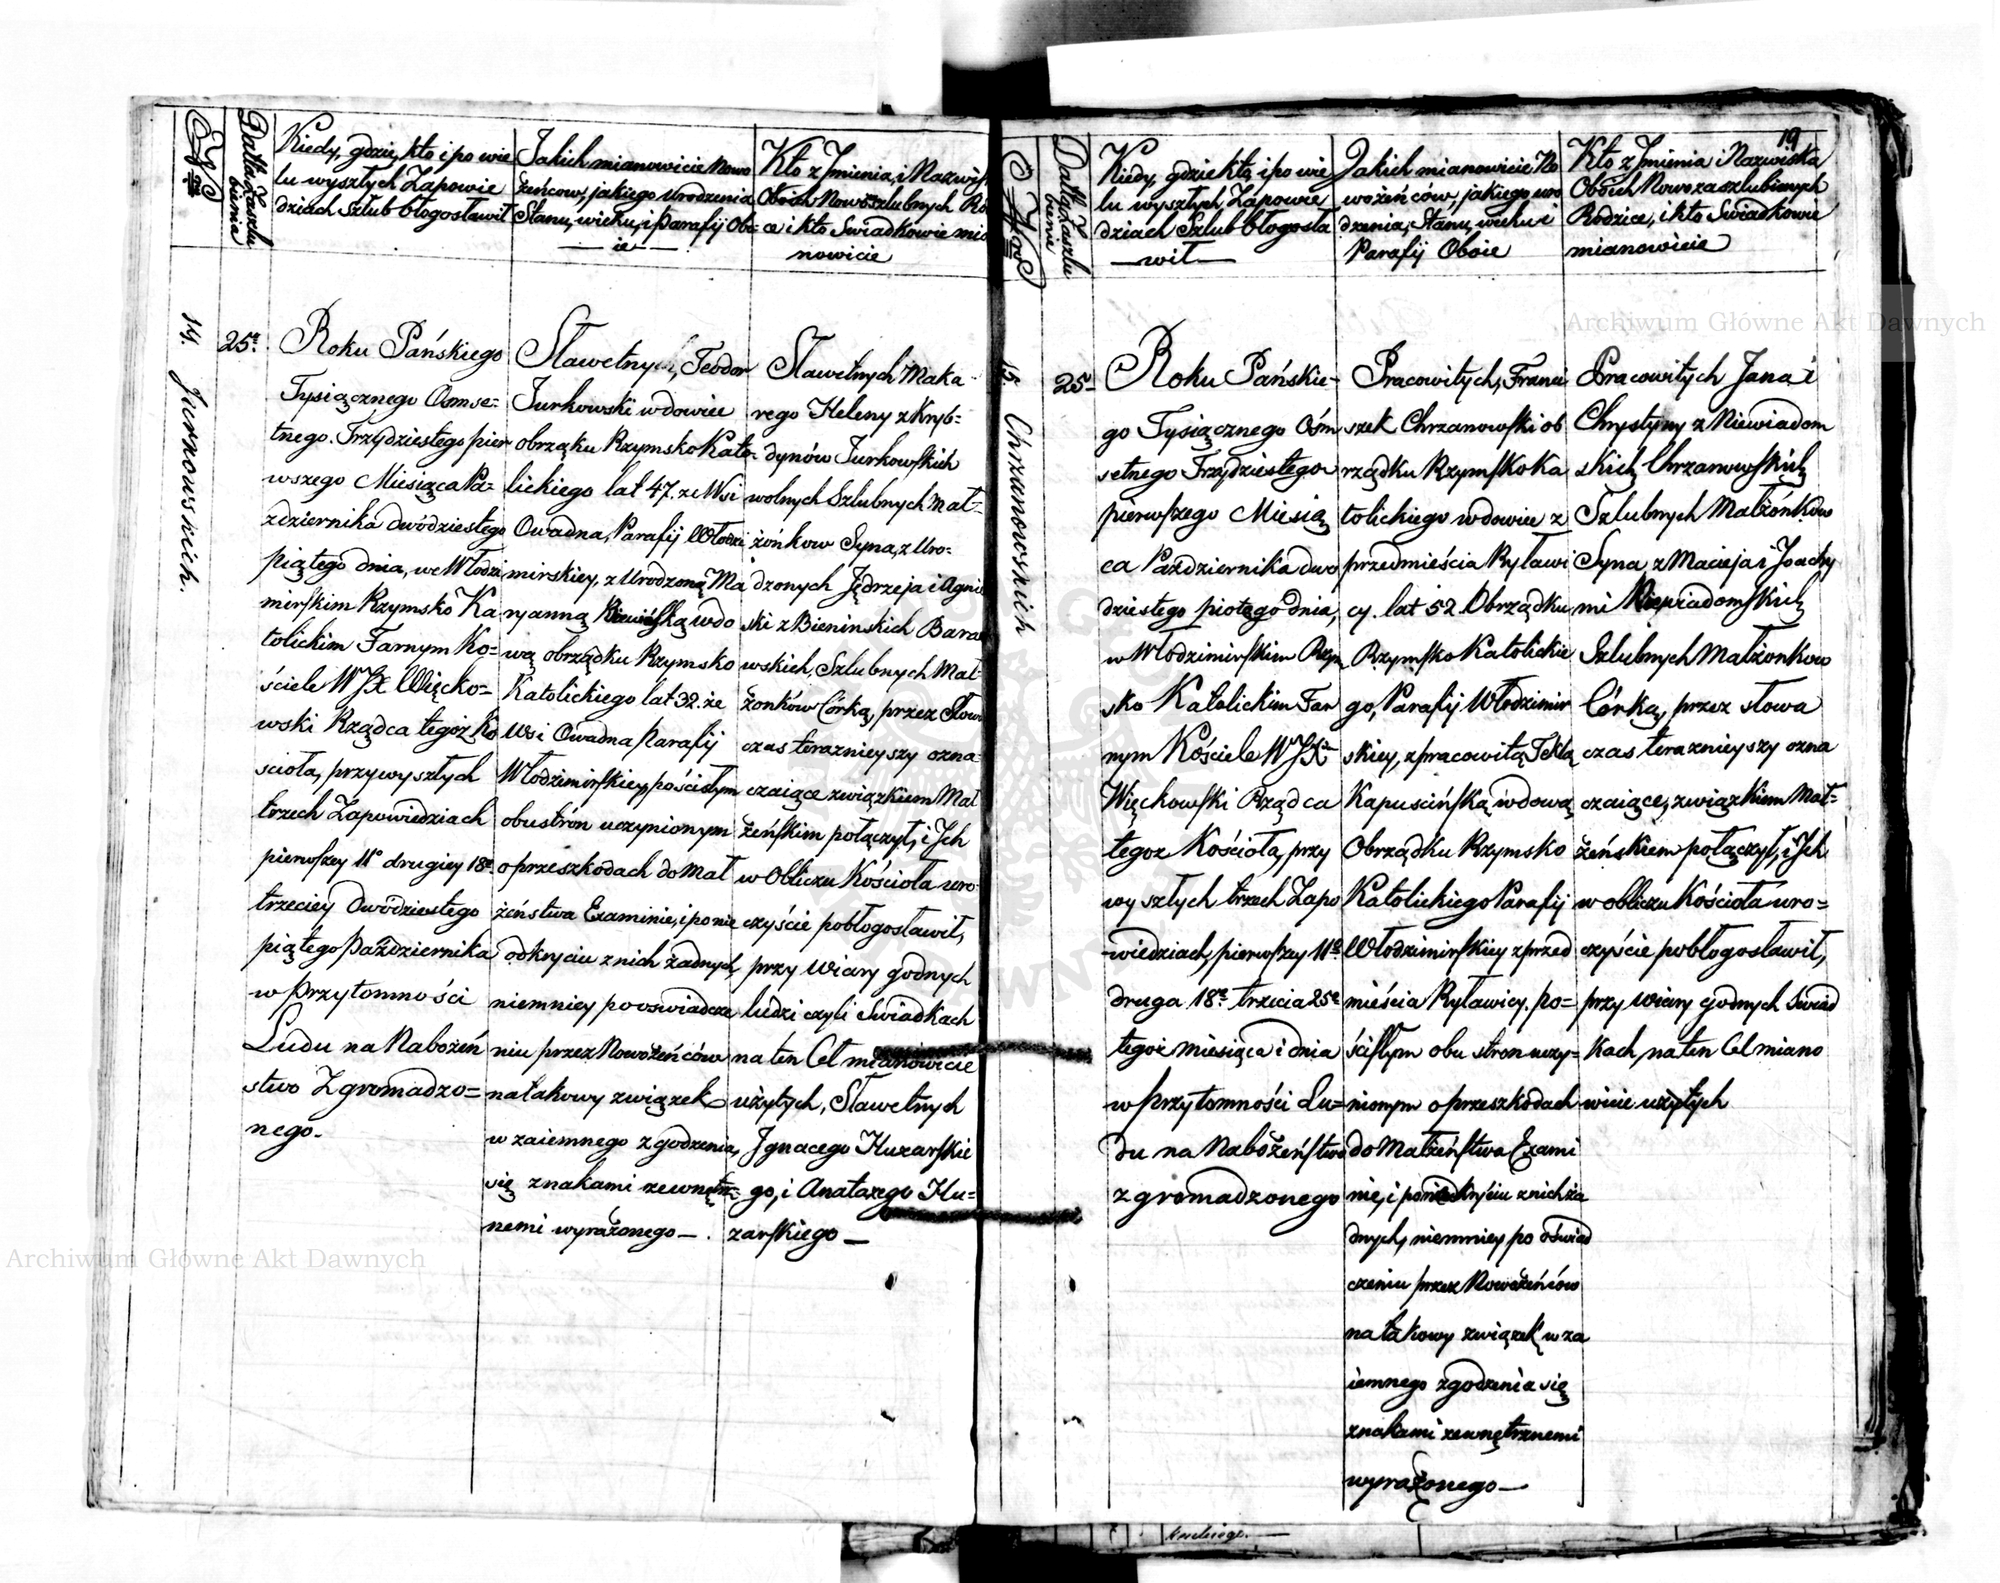 Datta Zaszlu
bienia
Kiedy, gdzie, kto i po wie
lu wyszłych Zapowie
dziach Szlub błogosławił
Jakich mianowicie Nowo
żeńcow, jakiego Urodzenia
Stanu, wieku, i Parafij Obo-
ie
Kto z Jmienia, i Nazwis
Oboich Nowoszlubnych Ro
ce i kto Swiadkowie mia
nowicie
14.
Jurkowskich.
25º
Roku Pańskiego
Tysiącznego Osmse-
tnego. Trzydziestego pier
wszego Miesiąca Pa-
zdziernika dwódziestego
piątego dnia, we Włodzi
mirskim Rzymsko Ka
tolickim Farnym Ko-
ściele WJX Więcko-
wski Rządca tegoż Ko
scioła, przy wyszłych
trzech Zapowiedziach
pierwszey 11º drugiey 18º
trzeciey Dwódziestego
piątego Października
w przytomności
Ludu na Naboźeń
stwo Zgromadzo-
nego.
Sławetnych, Teodor
Jurkowski wdowiec
obrządku Rzymsko Kato-
lickiego lat 47. ze Wsi
Owadna, Parafij Włodzi
mirskiey, z Urodzoną Ma
ryanną wdo
wą obrządku Rzymsko
Katolickiego lat 32. ze
Wsi Owadna Parafij
Włodzimirskiey, po ścisłym
obustrón uczynionym
o przeszkodach do Mał
żeństwa Examinie, i po nie
odkryciu z nich żadnych,
niemniey po oswiadcze
niu przez Nowożeńców
na takowy związek
wzaiemnego zgodzenia
się znakami zewnętrz-
nemi wyrażonego —
Sławetnych Maka-
rego Heleny z Kryb-
dynów Jurkowskich
wolnych Szlubnych Mał-
żónkow Syna, z Uro-
dzonych Jędrzeja i Agnie
ski z Bieninskich Bara
wskich, Szlubnych Mał-
żonków Córką, przez słowa
czas teraznieyszy ozna-
czaiące związkiem Mał
żeńskim połączył, i Jch
w Obliczu Kościoła uro-
czyście pobłogosławił,
przy Wiary godnych
ludzi czyli Swiadkach
na ten Cel mianowicie
użytych, Sławetnych
Jgnacego Huzarskie
go, i Anatazego Hu-
zarskiego —
19
Datta Zaszlu
bienia
Kiedy, gdzie kto, i po wie
lu wyszłych Zapowie
dziach Szlub błogosła
wił
Jakich mianowicie No
wożeńców, jakiego uro
dzenia, Stanu, wieku i
Parafij Oboie
Kto z Jmienia i Nazwiska
Oboich Nowozaszlubionych
Rodzice, i kto Swiadkowie
mianowicie
15.
Chrzanowskich
25º
Roku Pańskie-
go Tysiącznego Ośm
setnego Trzydziestego
pierwszego Miesią
ca Października dwo
dziestego piątego dnia,
w Włodzimirskim Rzym
sko Katolickim Far
nym Kościele WJX
Więckowski Rządca
tegoz Kościoła, przy
wyszłych trzech Zapo
wiedziach, pierwszey 11º
druga 18º trzecia 25º
tegoż miesiąca i dnia
w przytomności Lu-
du na Nabożeństwo
zgromadzonego
Pracowitych, Franci
szek Chrzanowski ob
rządku Rzymsko Ka
tolickiego wdowiec z
przedmieścia Ryławi
cy. lat 52. Obrządku
Rzymsko Katolickie
go, Parafij Włodzimir
skiey, z pracowitą Teklą
Kapuscińską wdową
Obrządku Rzymsko
Katolickiego Parafij
Włodzimirskiey z przed
mieścia Ryławicy. po-
ścisłym obu stron uczy-
nionym o przeszkodach
do Małżeństwa Exami
nie, i po nieodkryciu z nich ża
dnych, niemniey po oświad
czeniu przez Nowożeńców
na takowy związek wza
iemnego zgodzenia się
znakami zewnętrznemi
wyrażonego —
Pracowitych Jana i
Chrystyny z Niewiadom
skich Chrzanowskich
Szlubnych Małżónków
Syna z Macieja i Joachy
mi Niewiadomskich
Szlubnych Małżonkow
Córką, przez słowa
czas teraznieyszy ozna
czaiące, związkiem Mał-
żeńskiem połączył, i Jch
w obliczu Kościoła uro-
czyście pobłogosławił,
przy wiary godnych Swiad
kach, na ten Cel miano
wicie użytych
Archiwum Główne Akt Dawnych
Archiwum Główne Akt Dawnych